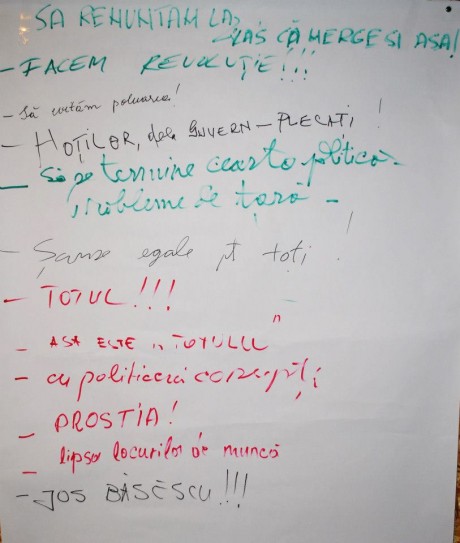 SA RENUNTAM LA,
"LAS CĂ MERGE SI ASA!
- FACEM REVOLUȚIE!!!
- Să uităm poluarea!
- HOȚILOR, dela GUVERN - PLECAȚI!
- Să se termine cearta politică -
probleme de țară -
- Șanse egale pt toți!
- TOTUL!!!
- ASA ESTE "TOTULLL"
- cu politicieni corupți
- PROSTIA!
- lipsa locurilor de muncă
- JOS BĂSESCU!!!